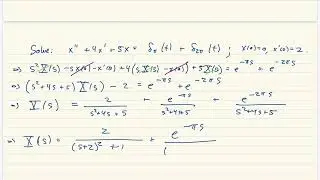 Solve: x'' + 4x' + 5x = δ_π(t) + δ_2π(t) ; x(0)=0, x'(0)=2.
⇒ s²X(s) - sx(0) - x'(0) + 4(sX(s) - x(0)) + 5X(s) = e^{-πs} + e^{-2πs}
⇒ (s²+4s+5)X(s) - 2 = e^{-πs} + e^{-2πs}
⇒ X(s) = 2/(s²+4s+5) + e^{-πs}/(s²+4s+5) + e^{-2πs}/(s²+4s+5)
⇒ X(s) = 2/((s+2)²+1) + e^{-πs}/(